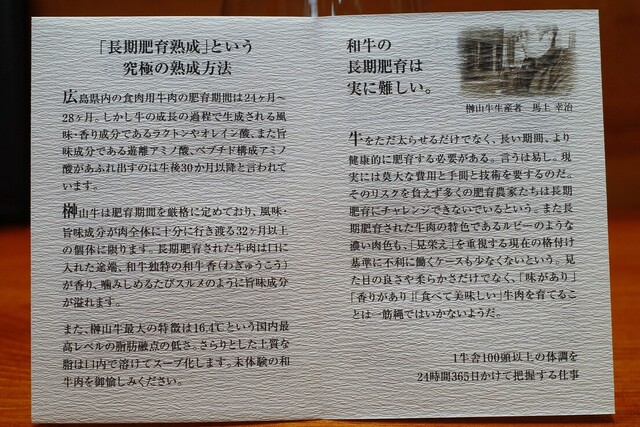 「長期肥育熟成」という
究極の熟成方法
広島県内の食肉用牛肉の肥育期間は24ヶ月〜
28ヶ月。しかし牛の成長の過程で生成される風
味・香り成分であるラクトンやオレイン酸、また旨
味成分である遊離アミノ酸、ペプチド構成アミノ
酸があふれ出すのは生後30か月以降と言われて
います。
榊山牛は肥育期間を厳格に定めており、風味・
旨味成分が肉全体に十分に行き渡る32ヶ月以上
の個体に限ります。長期肥育された牛肉は口に
入れた途端、和牛独特の和牛香(わぎゅうこう)
が香り、噛みしめるたびスルメのように旨味成分
が溢れます。
また、榊山牛最大の特徴は16.4℃という国内最
高レベルの脂肪融点の低さ。さらりとした上質な
脂は口内で溶けてスープ化します。未体験の和
牛肉を御愉しみください。
和牛の
長期肥育は
実に難しい。
榊山牛生産者 馬上 幸治
牛をただ太らせるだけでなく、長い期間、より
健康的に肥育する必要がある。言うは易し。現
実には莫大な費用と手間と技術を要するのだ。
そのリスクを負えず多くの肥育農家たちは長期
肥育にチャレンジできないでいるという。また長
期肥育された牛肉の特色であるルビーのような
濃い肉色も、「見栄え」を重視する現在の格付け
基準に不利に働くケースも少なくないという。見
た目の良さや柔らかさだけでなく、「味があり」
「香りがあり」「食べて美味しい」牛肉を育てるこ
とは一筋縄ではいかないようだ。
1牛舎100頭以上の体調を
24時間365日かけて把握する仕事